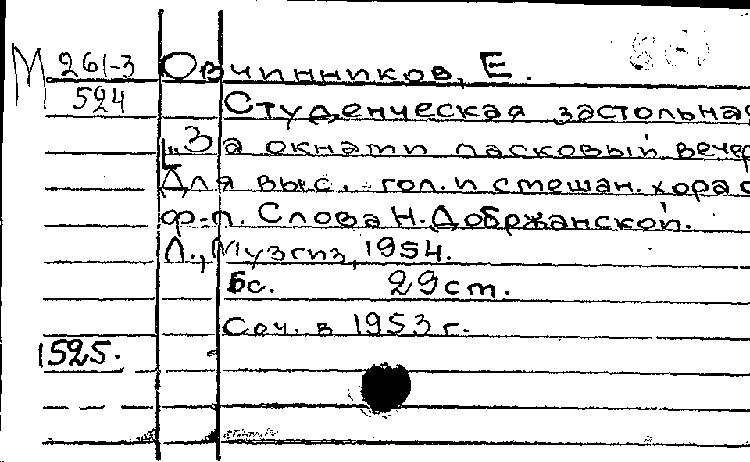 М 261-3 Овчинников, Е.
524 Студенческая застольная
["За окнами ласковый вечер
Для выс. гол. и смешан. хора с
ф-п. Слова Н. Добржанской.
Л., Музгиз, 1954.
6с. 29 ст.
Соч. в 1953 г.
1525.